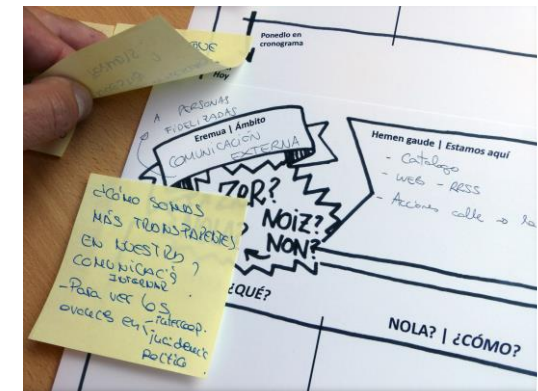 QUE
Ponedlo en
cronograma
Hoy
A PERSONAS
FIDELIZADAS
Eremua | Ámbito
COMUNICACIÓN
EXTERNA
Hemen gaude | Estamos aquí
- Catálogo
- WEB - RRSS
- Acciones calle →
ZOR?
NOIZ?
NON?
¿QUÉ?
NOLA? | ¿CÓMO?
¿CÓMO SOMOS
MÁS TRANSPARENTES
EN NUESTRA
COMUNICACIÓ
INTERNA?
- Para ver los
avances en - intercoop.
- incidencia